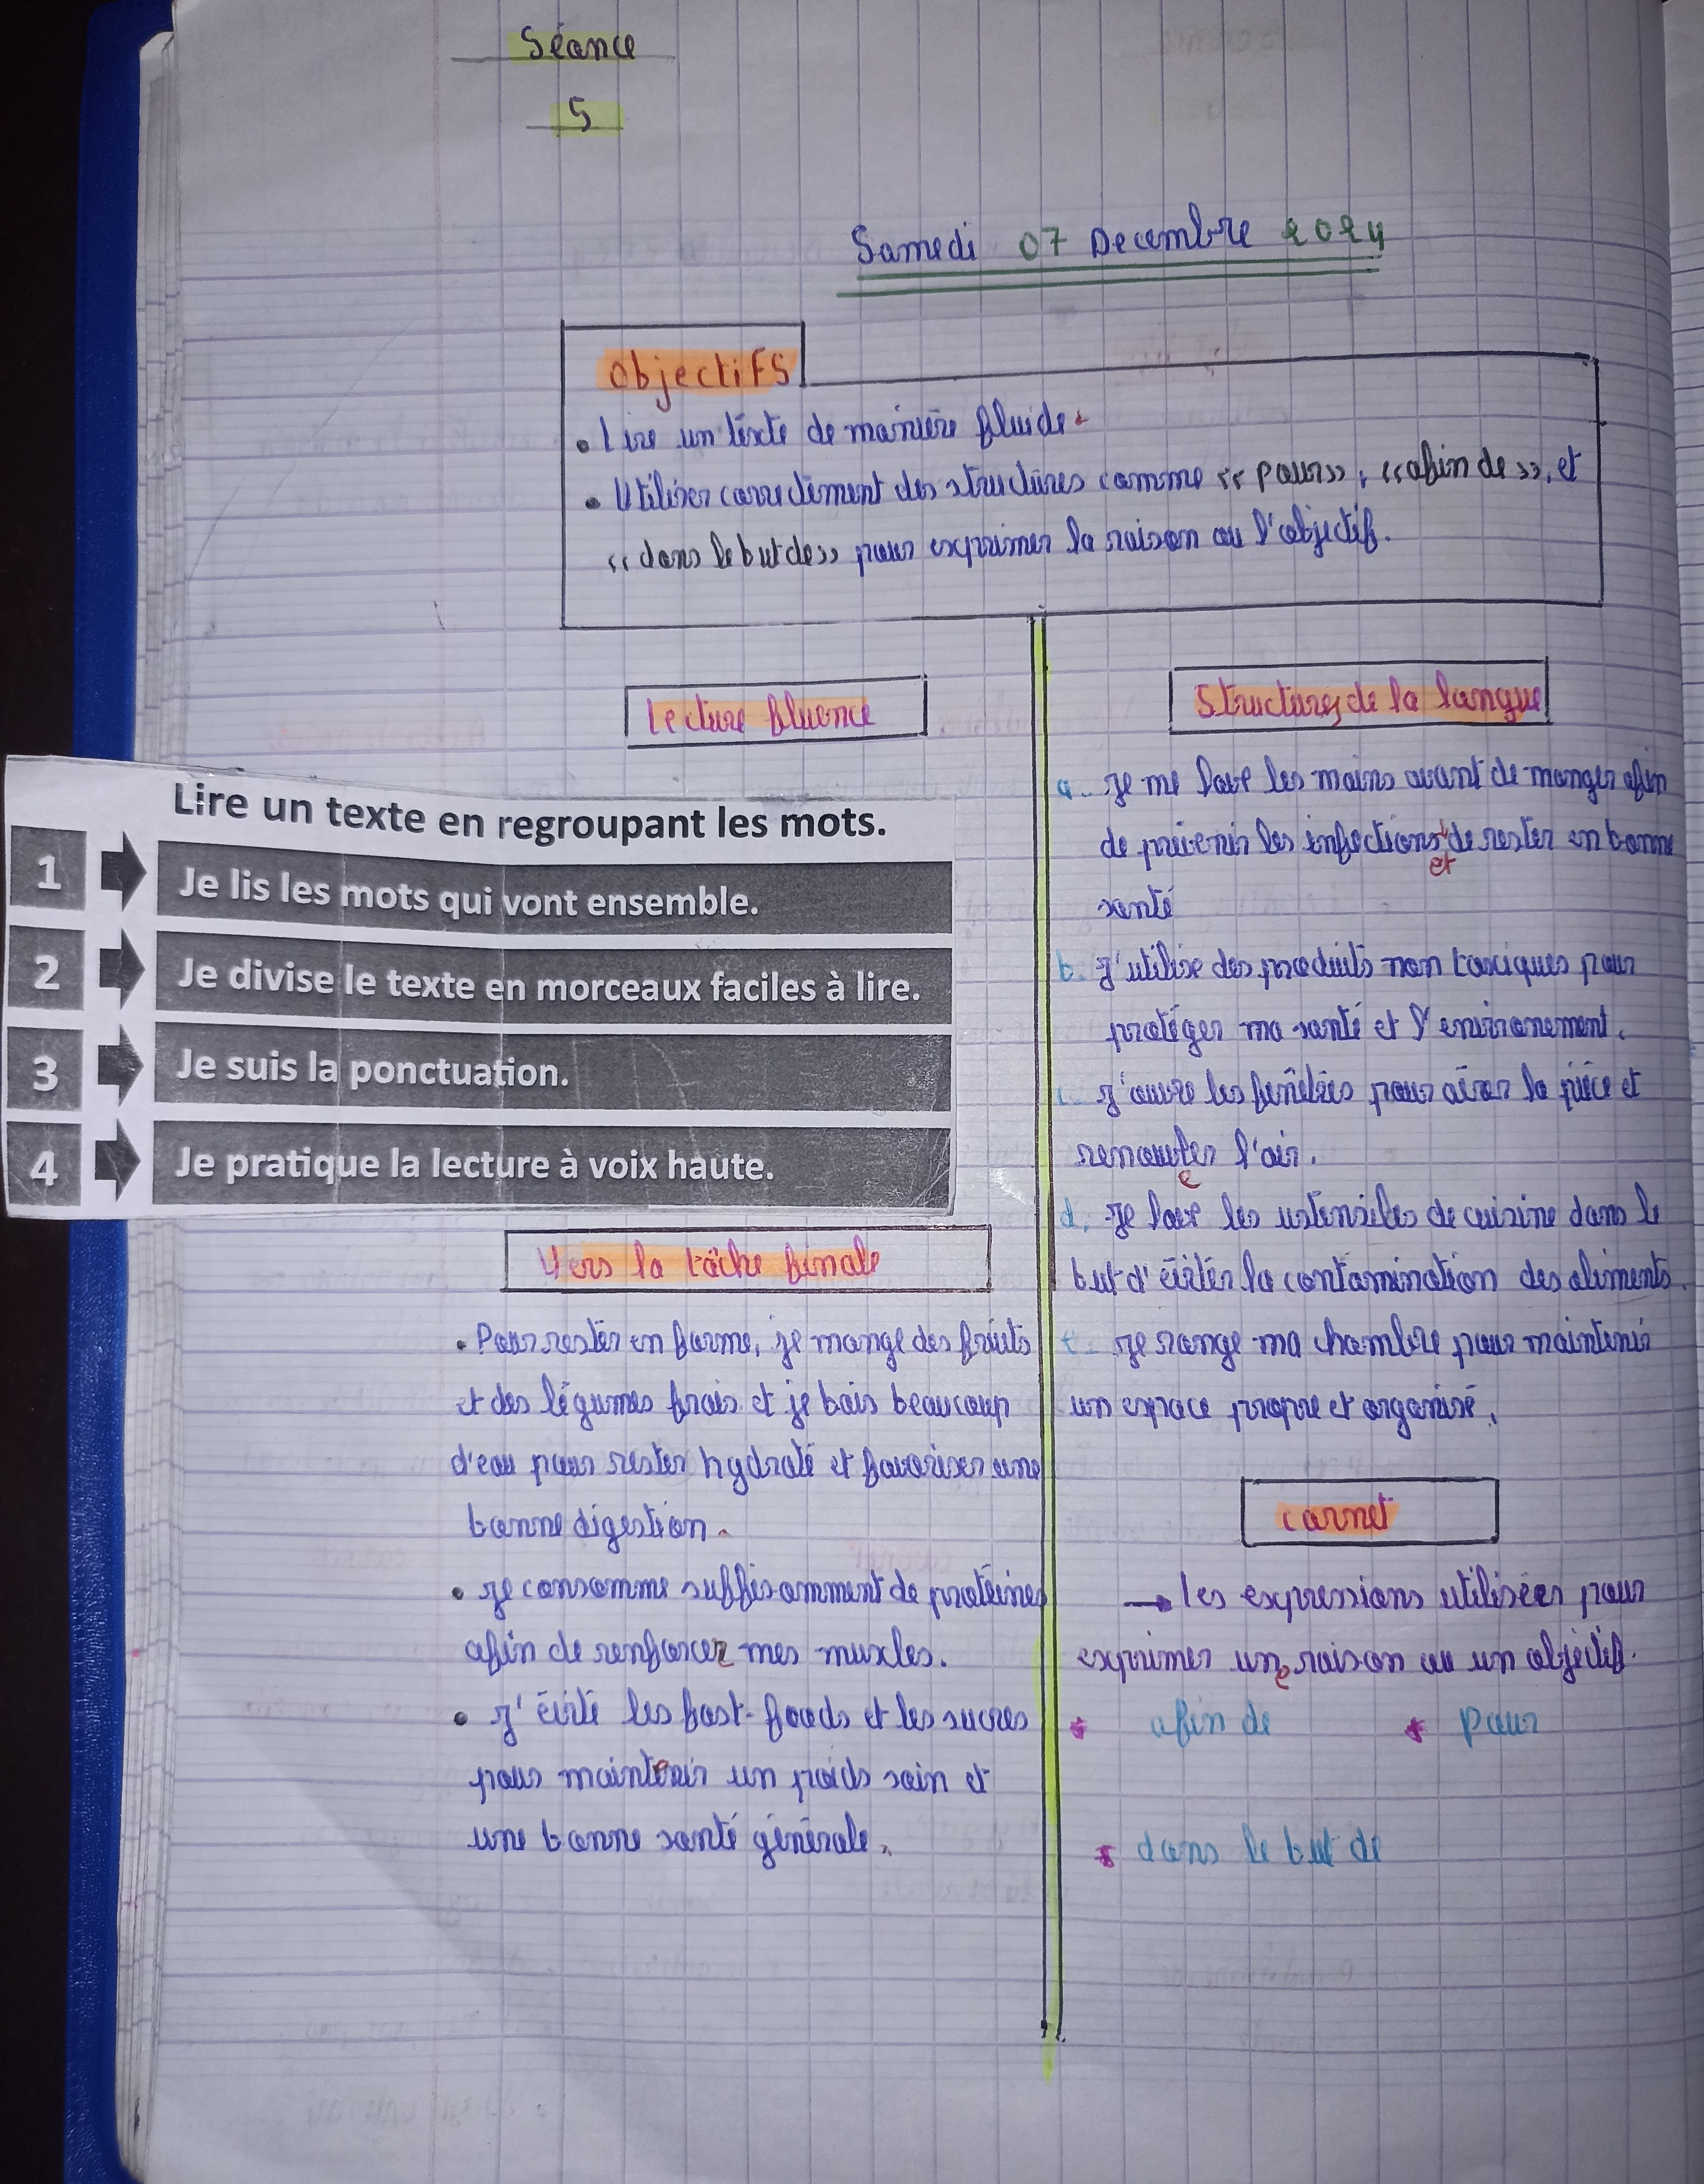 Séance
5
Samedi 07 Decembre 2024
Objectifs
• Lire un texte de manière fluide.
• Utiliser correctement des structures comme «pour», «afin de», et
«dans le but de» pour exprimer la raison ou l'objectif.
Lecture fluence
Lire un texte en regroupant les mots.
1 Je lis les mots qui vont ensemble.
2 Je divise le texte en morceaux faciles à lire.
3 Je suis la ponctuation.
4 Je pratique la lecture à voix haute.
Vers la tâche finale
• Pour rester en forme, je mange des fruits
et des légumes frais et je bois beaucoup
d'eau pour rester hydraté et favoriser une
bonne digestion.
• Je consomme suffisamment de protéines
afin de renforcer mes muscles.
• J'évite les fast-foods et les sucres
pour maintenir un poids sain et
une bonne santé générale.
Structures de la langue
a. Je me lave les mains avant de manger afin
de prévenir les infections et de rester en bonne
santé
b. J'utilise des produits non toxiques pour
protéger ma santé et l'environement.
c. J'ouvre les fenêtres pour aérer la pièce et
renouveler l'air.
d. Je lave les ustensiles de cuisine dans le
but d'éviter la contamination des aliments.
e. Je range ma chambre pour maintenir
un espace propre et organisé.
carnet
→ Les expressions utilisées pour
exprimer une raison ou un objectif.
* afin de * pour
* dans le but de